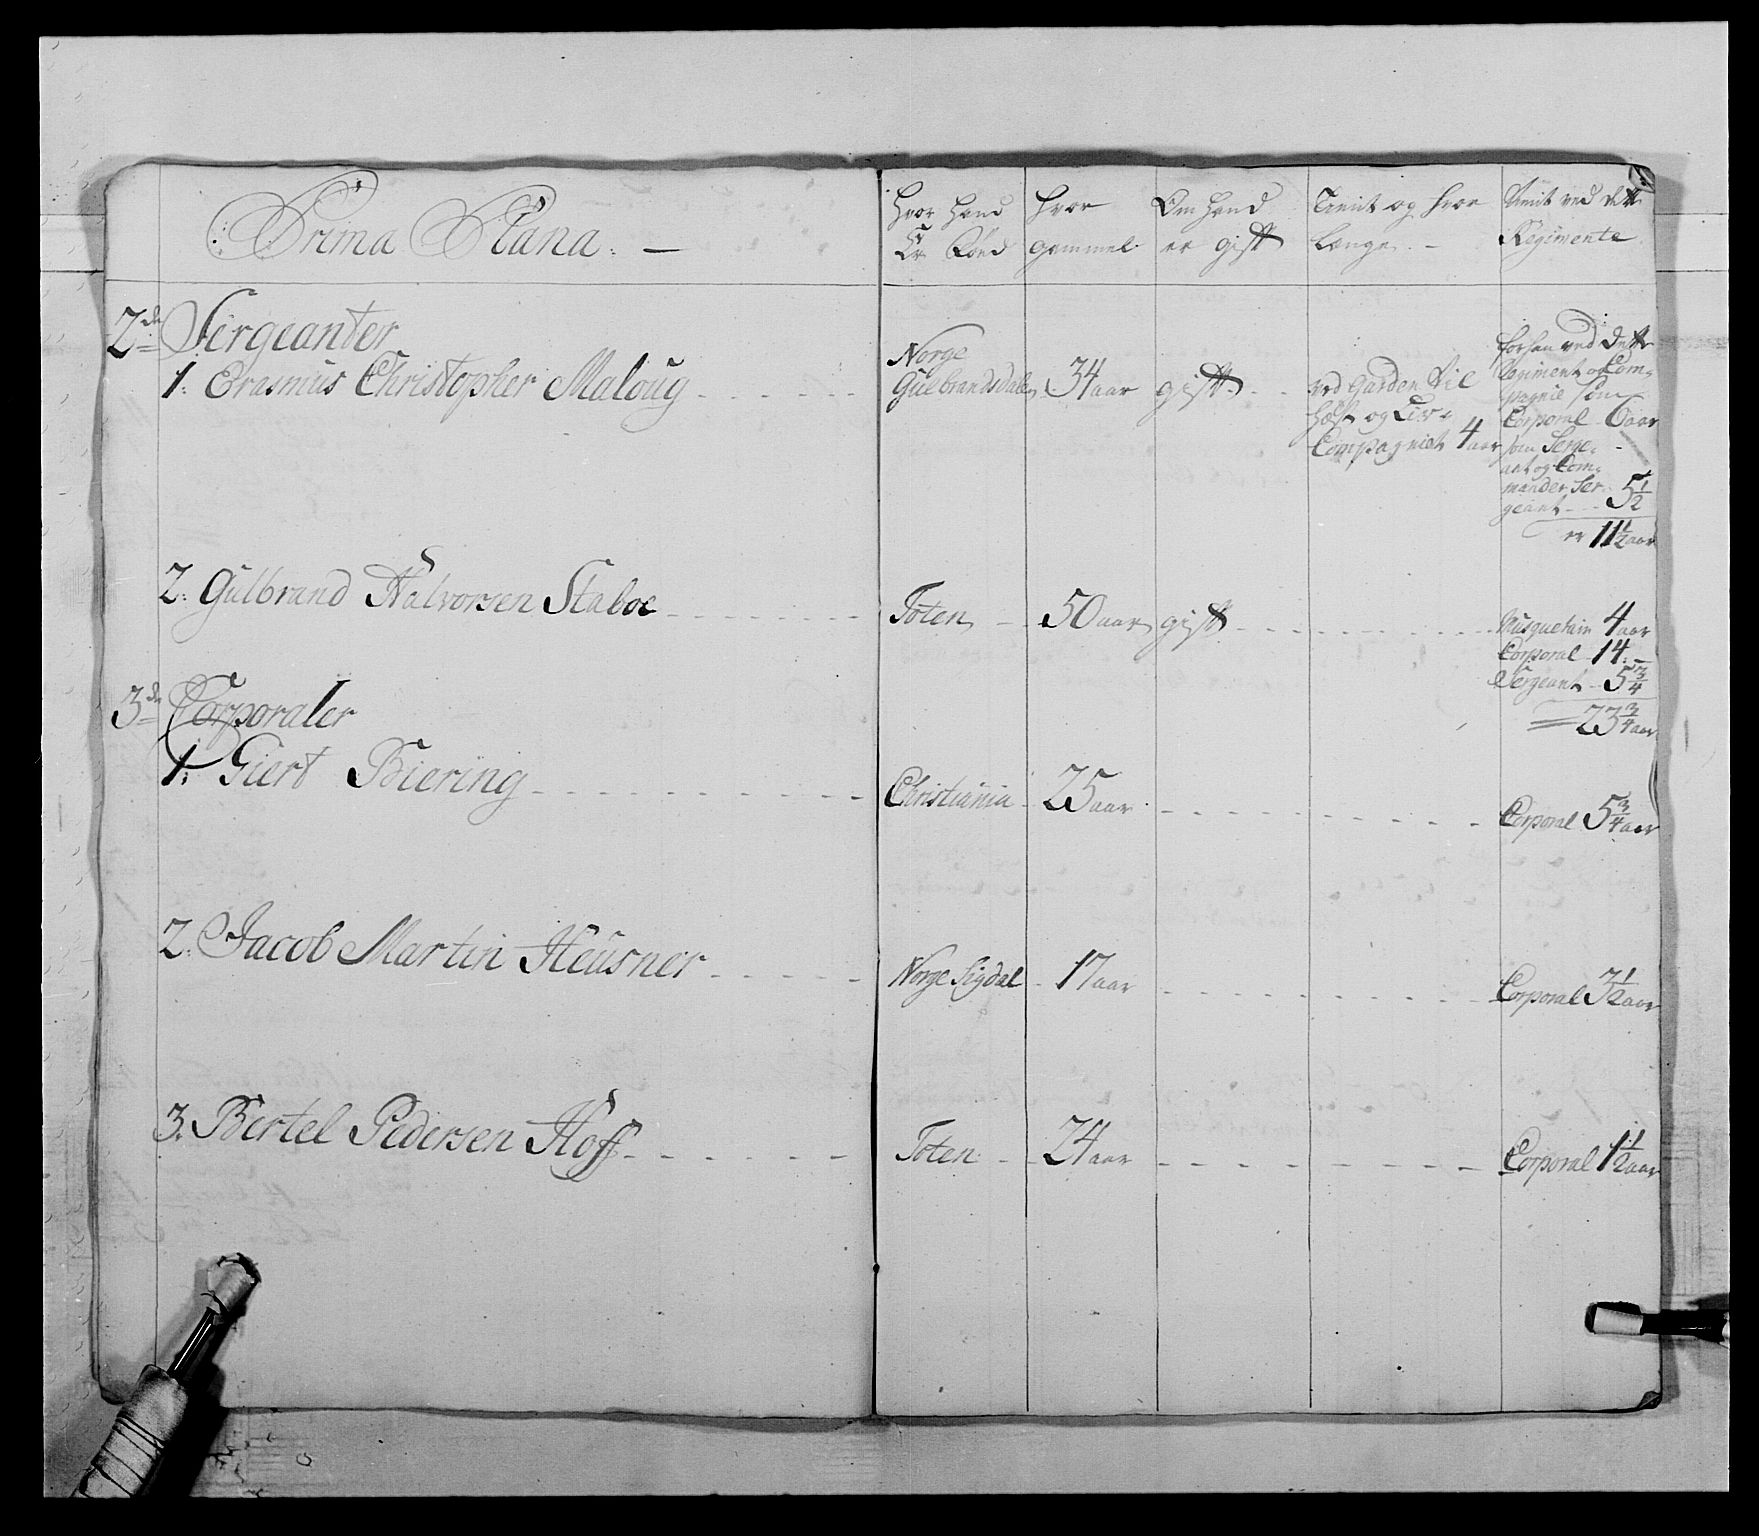 Prima Plana. —
Hvor Hand Er Fød
Hvor gammel
Om Hand er gift
Tient og hvor Længe. –
Tient ved dette Regimente
2de Sergeanter
1. Erasmus Christopher Maloug
Norge
Gulbrandsdalen
34 aar
gift
ved Garden til
Hæst og Liv-
Compagniet 4 aar
forhen ved dette
Regiment og Com-
pagnie som
Corporal 6 aar
som Serge-
ant og Com-
mander Ser-
geant 5 1/2
er 11 1/2 aar
2. Gulbrand Halvorsen Staboe
Toten
50 aar
gift
Musquetair 4 aar
Corporal 14. –
Sergeant 5 3/4
23 3/4 aar
3de Corporaler
1. Giert Biering
Christiania
25 aar
Corporal 5 3/4 aar
2. Jacob Martin Heusner
Norge Sigdal
17 aar
Corporal 3 1/2 aar
3. Bertel Pedersen Hoff
Toten
24 aar
Corporal 1 1/2 aar